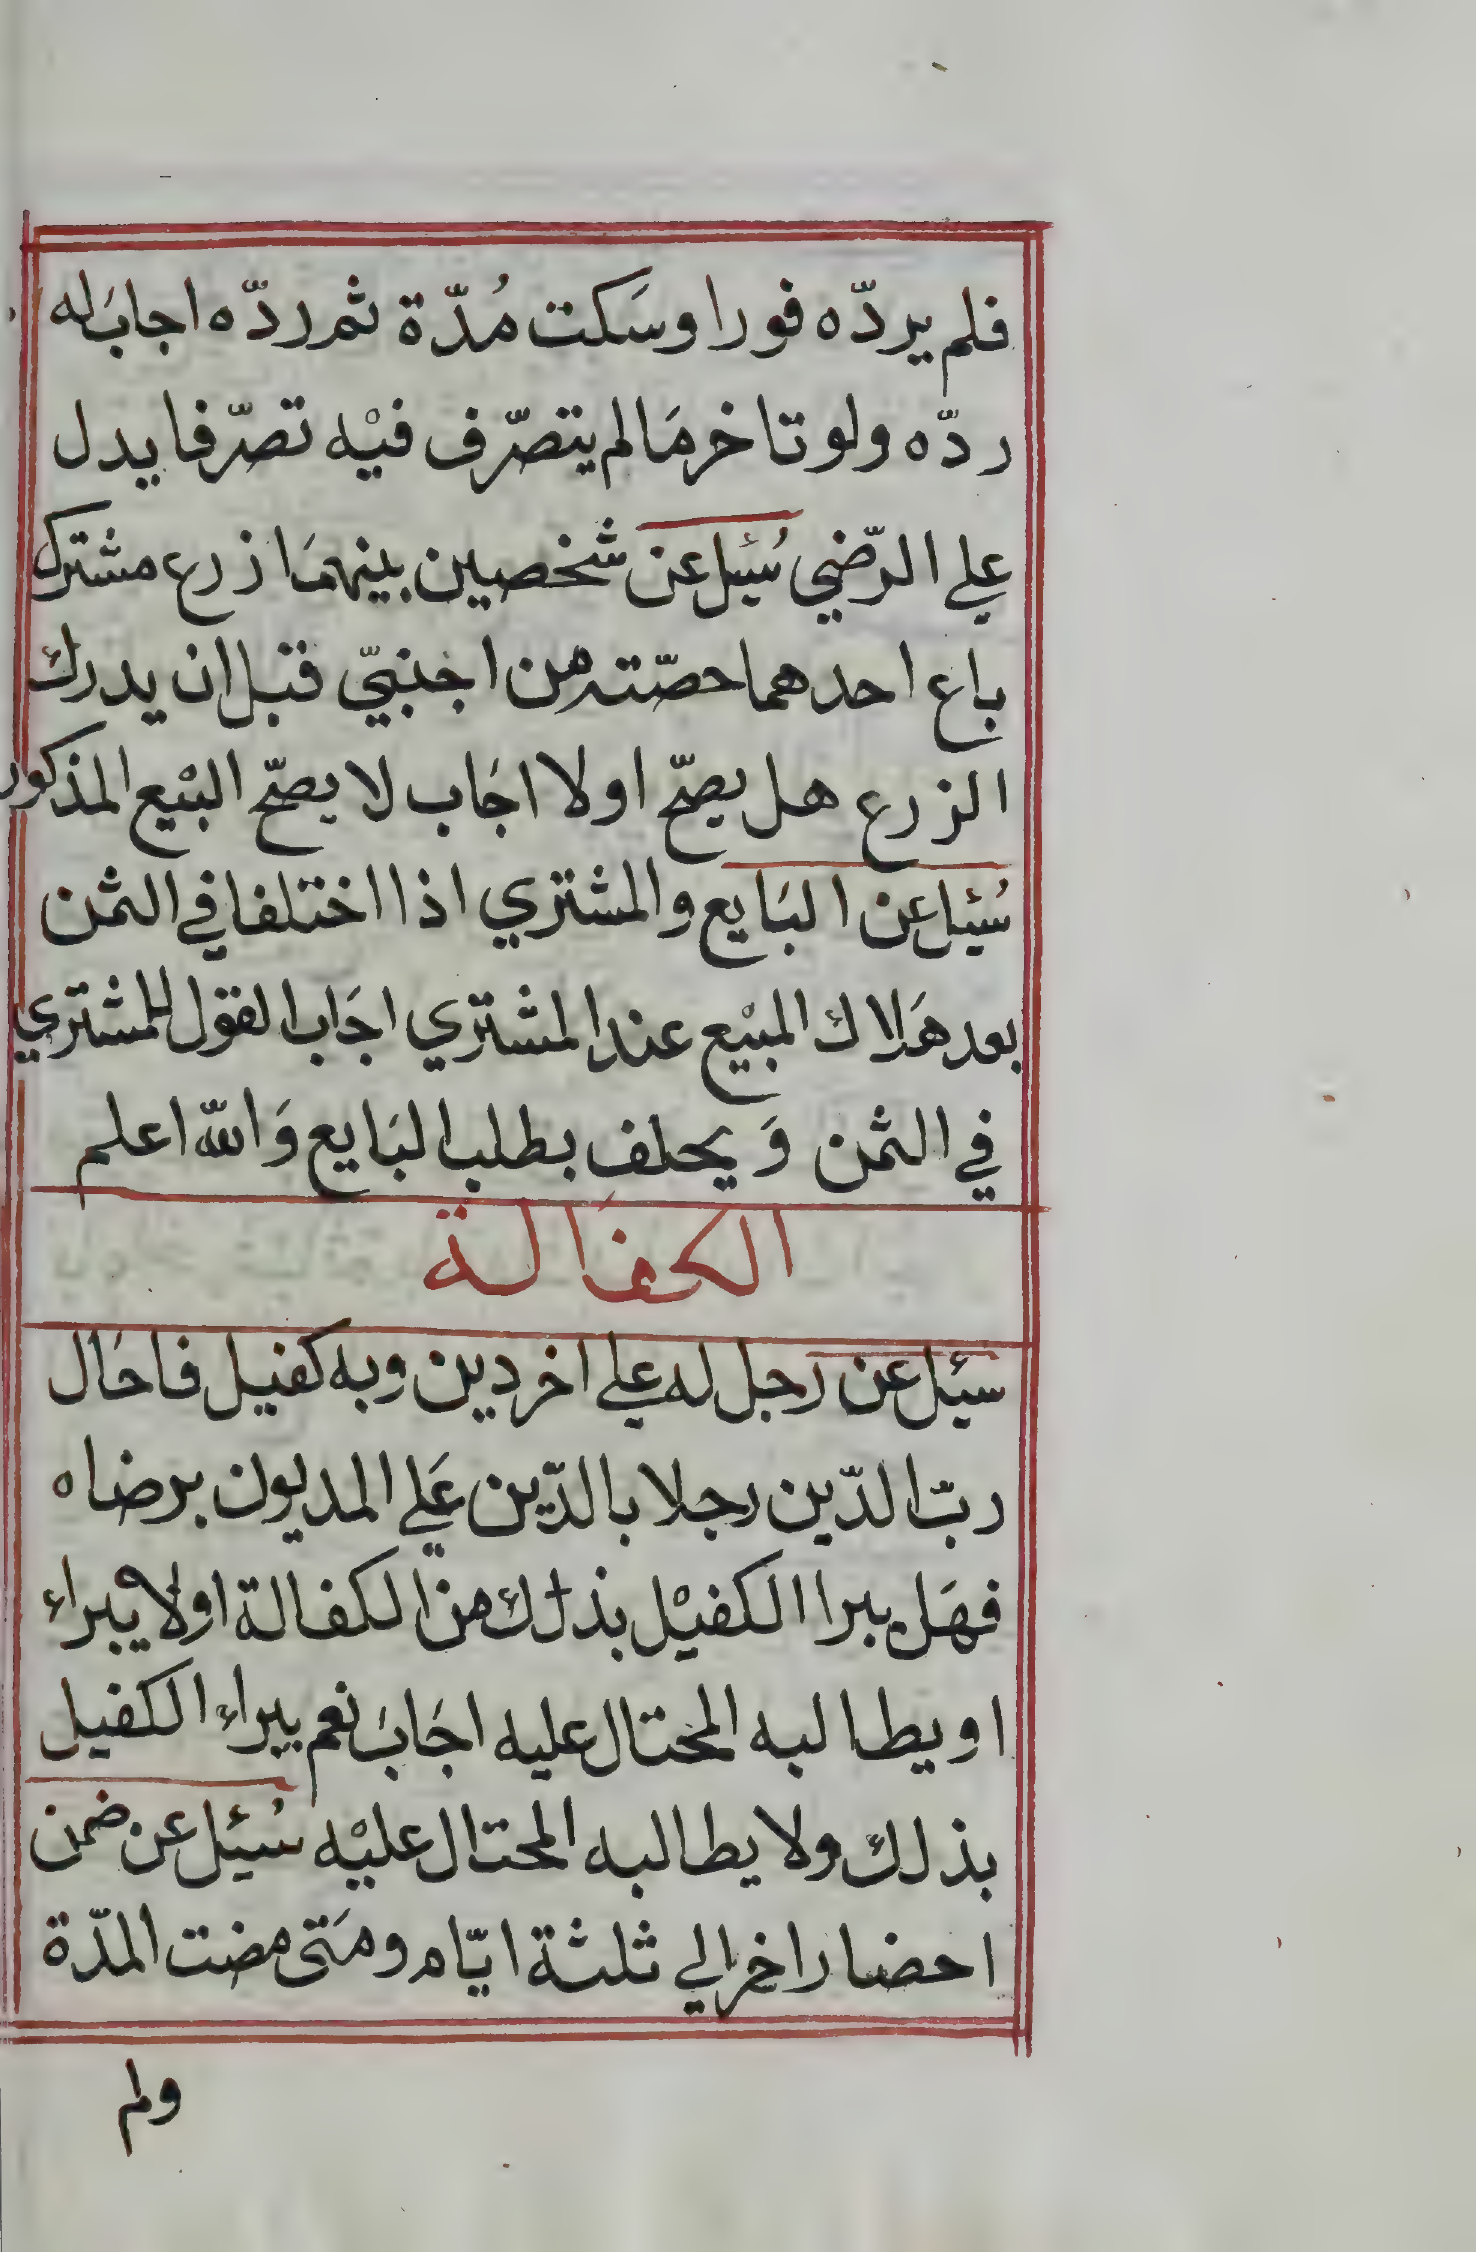 فلم يردّه فورا وسَكت مُدّة ثمر ردّه اجابَ له
ردّه ولو تاخر مَا لم يتصّرف فيْه تصّرفا يدل
علي الرّضي سُئيل عن شخصين بينهمَا زرع مشترك
باع احدهما حصّته من اجنبيّ قبل ان يدرك
الزرع هل يصحّ او لا اجَاب لا يصحّ البيْع المذكور
سُئيل عن البَايع والمشتري اذا اختلفا في الثمن
بعد هَلاك المبيْع عند المشتري اجَاب القول للمشتري
في الثمن وَيحلف بطلب البَايع وَالله اعلم
الكفَالة
سئيل عن رجل له علي اخر دين وبه كفيل فاحَال
ربّ الدّين رجلا بالدّين عَلي المديون برضاه
فهَل يبرا الكفيْل بذلك من الكفالة اولا يبراء
او يطالبه المحتال عليه اجَابَ نعم يبراء الكفيل
بذلك ولا يطالبه المحتال عليْه سُئيل عن ضمن
احضار اخر الي ثلثة ايّام ومَتى مضت المدّة
ولم